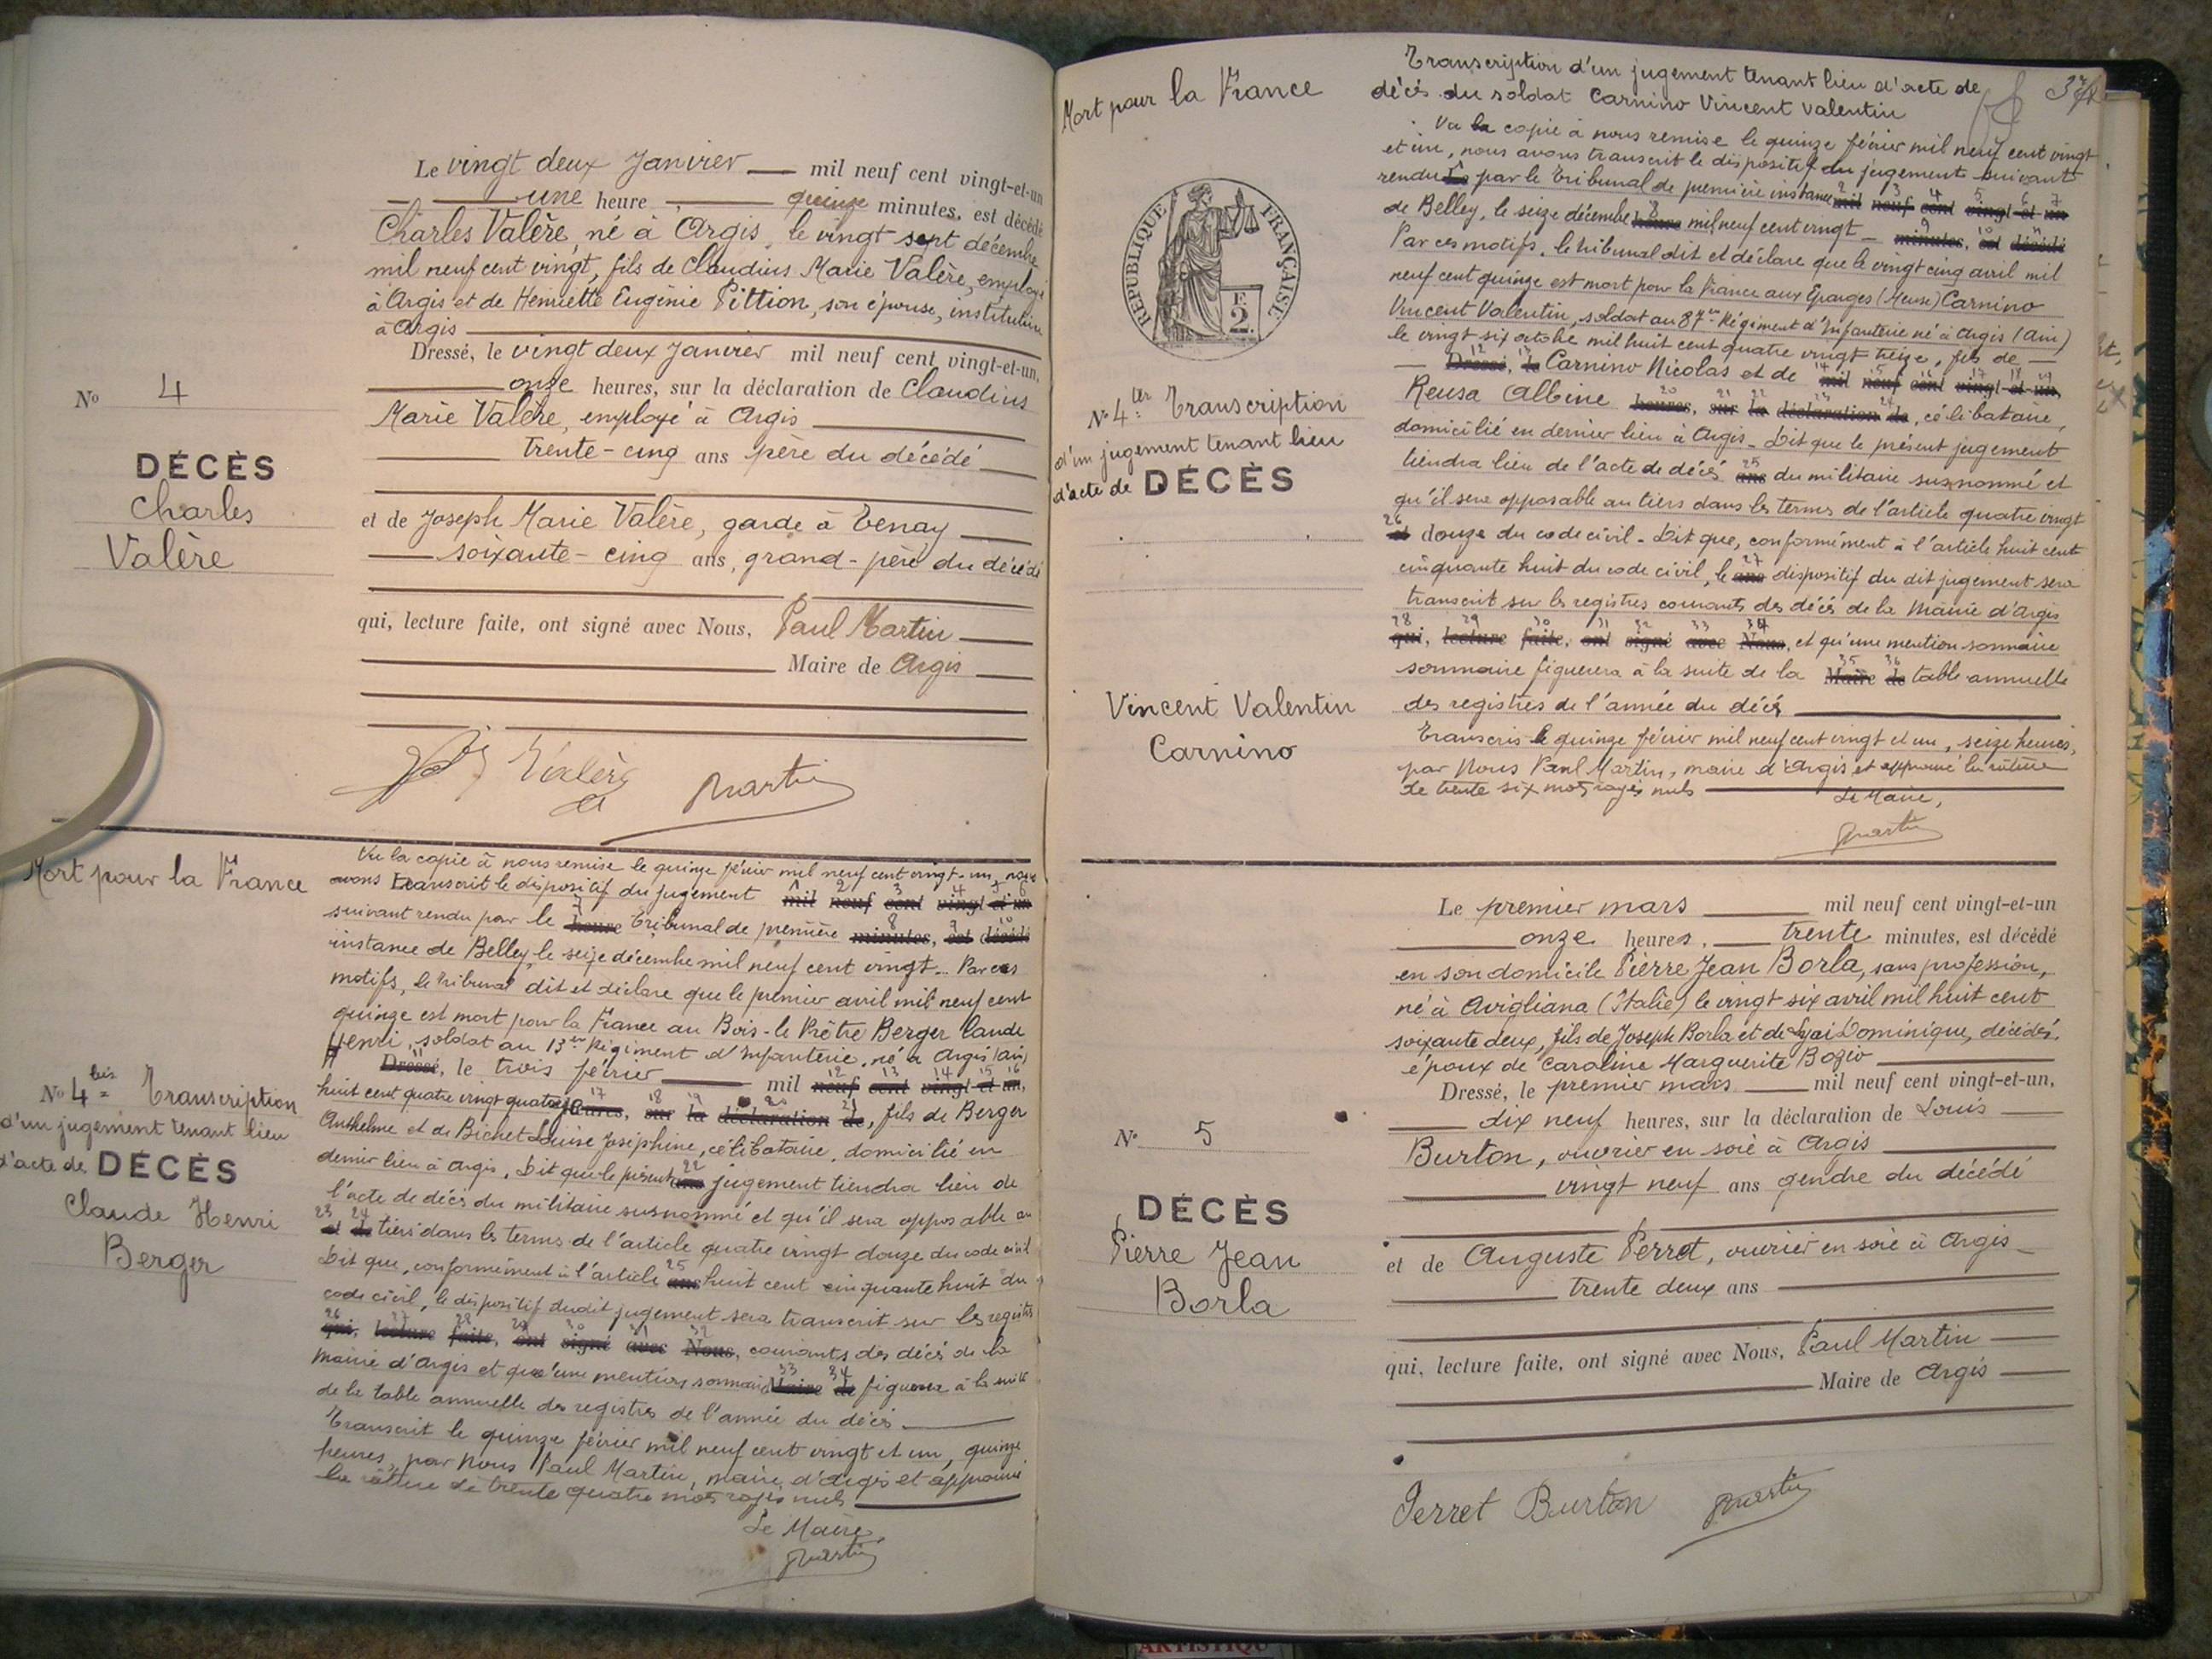 Le vingt deux Janvier mil neuf cent vingt-et-un
une heure quinze minutes, est décédé
Charles Valère, né à Argis, le vingt sept décembre
mil neuf cent vingt, fils de Claudius Marie Valère, employé
à Argis et de Henriette Eugénie Pittion, son épouse, institutrice
à Argis
Dressé, le vingt deux Janvier mil neuf cent vingt-et-un,
onze heures, sur la déclaration de Claudius
Marie Valère, employé à Argis
trente-cinq ans père du décédé
et de Joseph Marie Valère, garde à Tenay
soixante-cinq ans, grand-père du décédé
qui, lecture faite, ont signé avec Nous, Paul Martin
Maire de Argis
No 4
DÉCÈS
Charles
Valère
Valère Martin
Mort pour la France
No 4 bis Transcription
d'un jugement tenant lieu
d'acte de DÉCÈS
Claude Henri
Berger
Vu la copie à nous remise le quinze février mil neuf cent vingt-un, nous
avons transcrit le dispositif du jugement mil neuf cent vingt et un
suivant rendu par le heure Tribunal de première minutes, est décédé
instance de Belley, le seize décembre mil neuf cent vingt. Par ces
motifs, le tribunal dit et déclare que le premier avril mil neuf cent
quinze est mort pour la France au Bois-le Prêtre Berger Claude
Henri, soldat au 13e Régiment d'Infanterie, né à Argis (Ain)
Dressé, le trois février mil neuf cent vingt et un,
huit cent quatre vingt quatre heures, sur la déclaration de, fils de Berger
Anthelme et de Bichet Louise Joséphine, célibataire, domicilié en
dernier lieu à Argis. Dit que le présent ans jugement tiendra lieu de
l'acte de décès du militaire susnommé et qu'il sera opposable au
et de tiers dans les termes de l'article quatre vingt douze du code civil
Dit que, conformément à l'article ans huit cent cinquante huit du
code civil, le dispositif dudit jugement sera transcrit sur les registres
qui, lecture faite, ont signé avec Nous, courants des décès de la
mairie d'Argis et qu'une mention sommaire Maire de figurera à la suite
de la table annuelle des registres de l'année du décès
Transcrit le quinze février mil neuf cent vingt et un, quinze
heures, par Nous Paul Martin, maire d'Argis et approuvé
la rature de trente quatre mots rayés nuls
Le Maire,
Martin
37
Mort pour la France
RÉPUBLIQUE FRANÇAISE
2 F.
No 4 ter Transcription
d'un jugement tenant lieu
d'acte de DÉCÈS
Vincent Valentin
Carnino
Transcription d'un jugement tenant lieu d'acte de
décès du soldat Carnino Vincent Valentin
Vu la copie à nous remise le quinze février mil neuf cent vingt
et un, nous avons transcrit le dispositif du jugement suivant
rendu Le par le Tribunal de première instance mil neuf cent vingt et un
de Belley, le seize décembre heure mil neuf cent vingt minutes, est décédé
Par ces motifs, le tribunal dit et déclare que le vingt cinq avril mil
neuf cent quinze est mort pour la France aux Eparges (Meuse) Carnino
Vincent Valentin, soldat au 87me Régiment d'Infanterie né à Argis (Ain)
le vingt six octobre mil huit cent quatre vingt treize, fils de
Dressé, le Carnino Nicolas et de mil neuf cent vingt et un,
Reusa Albine heures, sur la déclaration de, célibataire,
domicilié en dernier lieu à Argis. Dit que le présent jugement
tiendra lieu de l'acte de décès ans du militaire susnommé et
qu'il sera opposable au tiers dans les termes de l'article quatre vingt
et douze du code civil. Dit que, conformément à l'article huit cent
cinquante huit du code civil, le ans dispositif du dit jugement sera
transcrit sur les registres courants des décès de la Mairie d'Argis
qui, lecture faite, ont signé avec Nous, et qu'une mention sommaire
sommaire figurera à la suite de la Maire de table annuelle
des registres de l'année du décès
Transcris le quinze février mil neuf cent vingt et un, seize heures,
par Nous Paul Martin, maire d'Argis et approuvé la rature
de trente six mots rayés nuls
Le Maire,
Martin
No 5
DÉCÈS
Pierre Jean
Borla
Le premier mars mil neuf cent vingt-et-un
onze heures, trente minutes, est décédé
en son domicile Pierre Jean Borla, sans profession,
né à Avigliana (Italie) le vingt six avril mil huit cent
soixante deux, fils de Joseph Borla et de Dominique, décédés,
époux de Caroline Marguerite Bozio
Dressé, le premier mars mil neuf cent vingt-et-un,
dix neuf heures, sur la déclaration de Louis
Burton, ouvrier en soie à Argis
vingt neuf ans gendre du décédé
et de Auguste Perret, ouvrier en soie à Argis
trente deux ans
qui, lecture faite, ont signé avec Nous, Paul Martin
Maire de Argis
Perret Burton Martin
ARTISTIQU